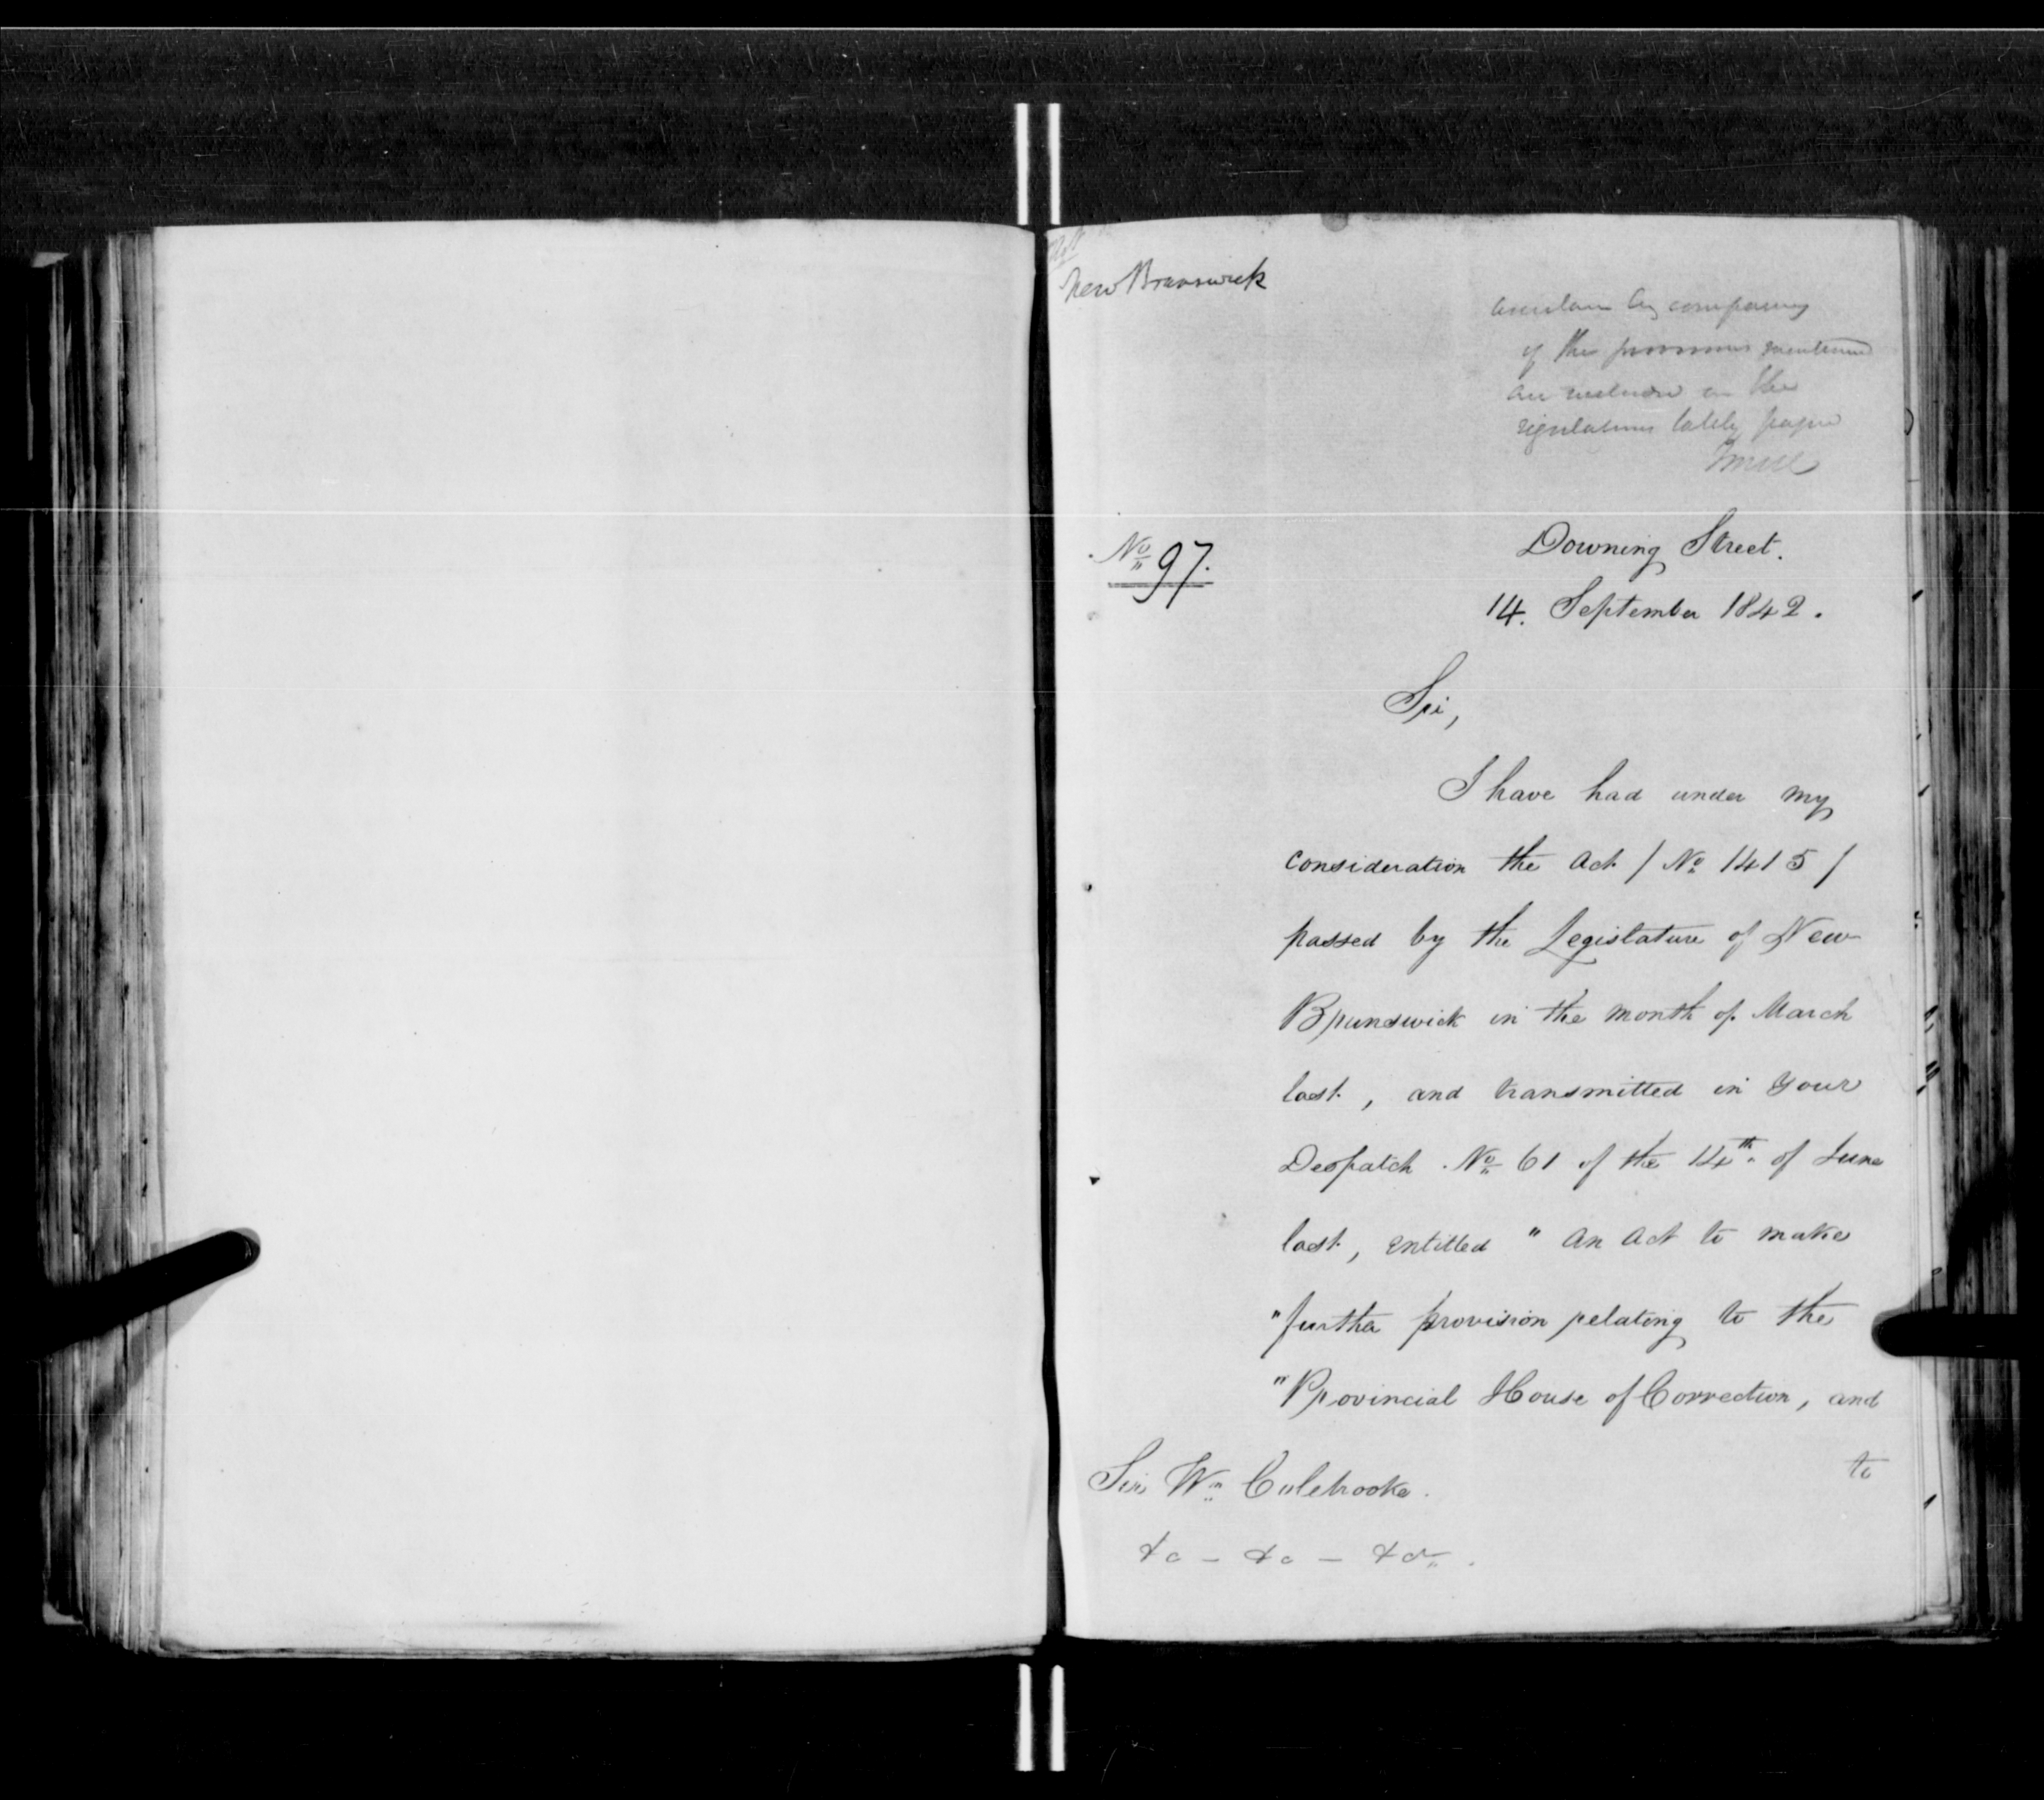 New Brunswick
by comparing
if the provisions
are included in the
regulations lately
No 97.
Downing Street.
14. September 1842.
Sir,
I have had under my
consideration the Act / No 1415 /
passed by the Legislature of New
Brunswick in the month of March
last, and transmitted in your
Despatch No 61 of the 14th of June
last, entitled " An Act to make
" further provision relating to the
" Provincial House of Correction, and
to
Sir Wm Colebrooke.
&c - &c - &c.